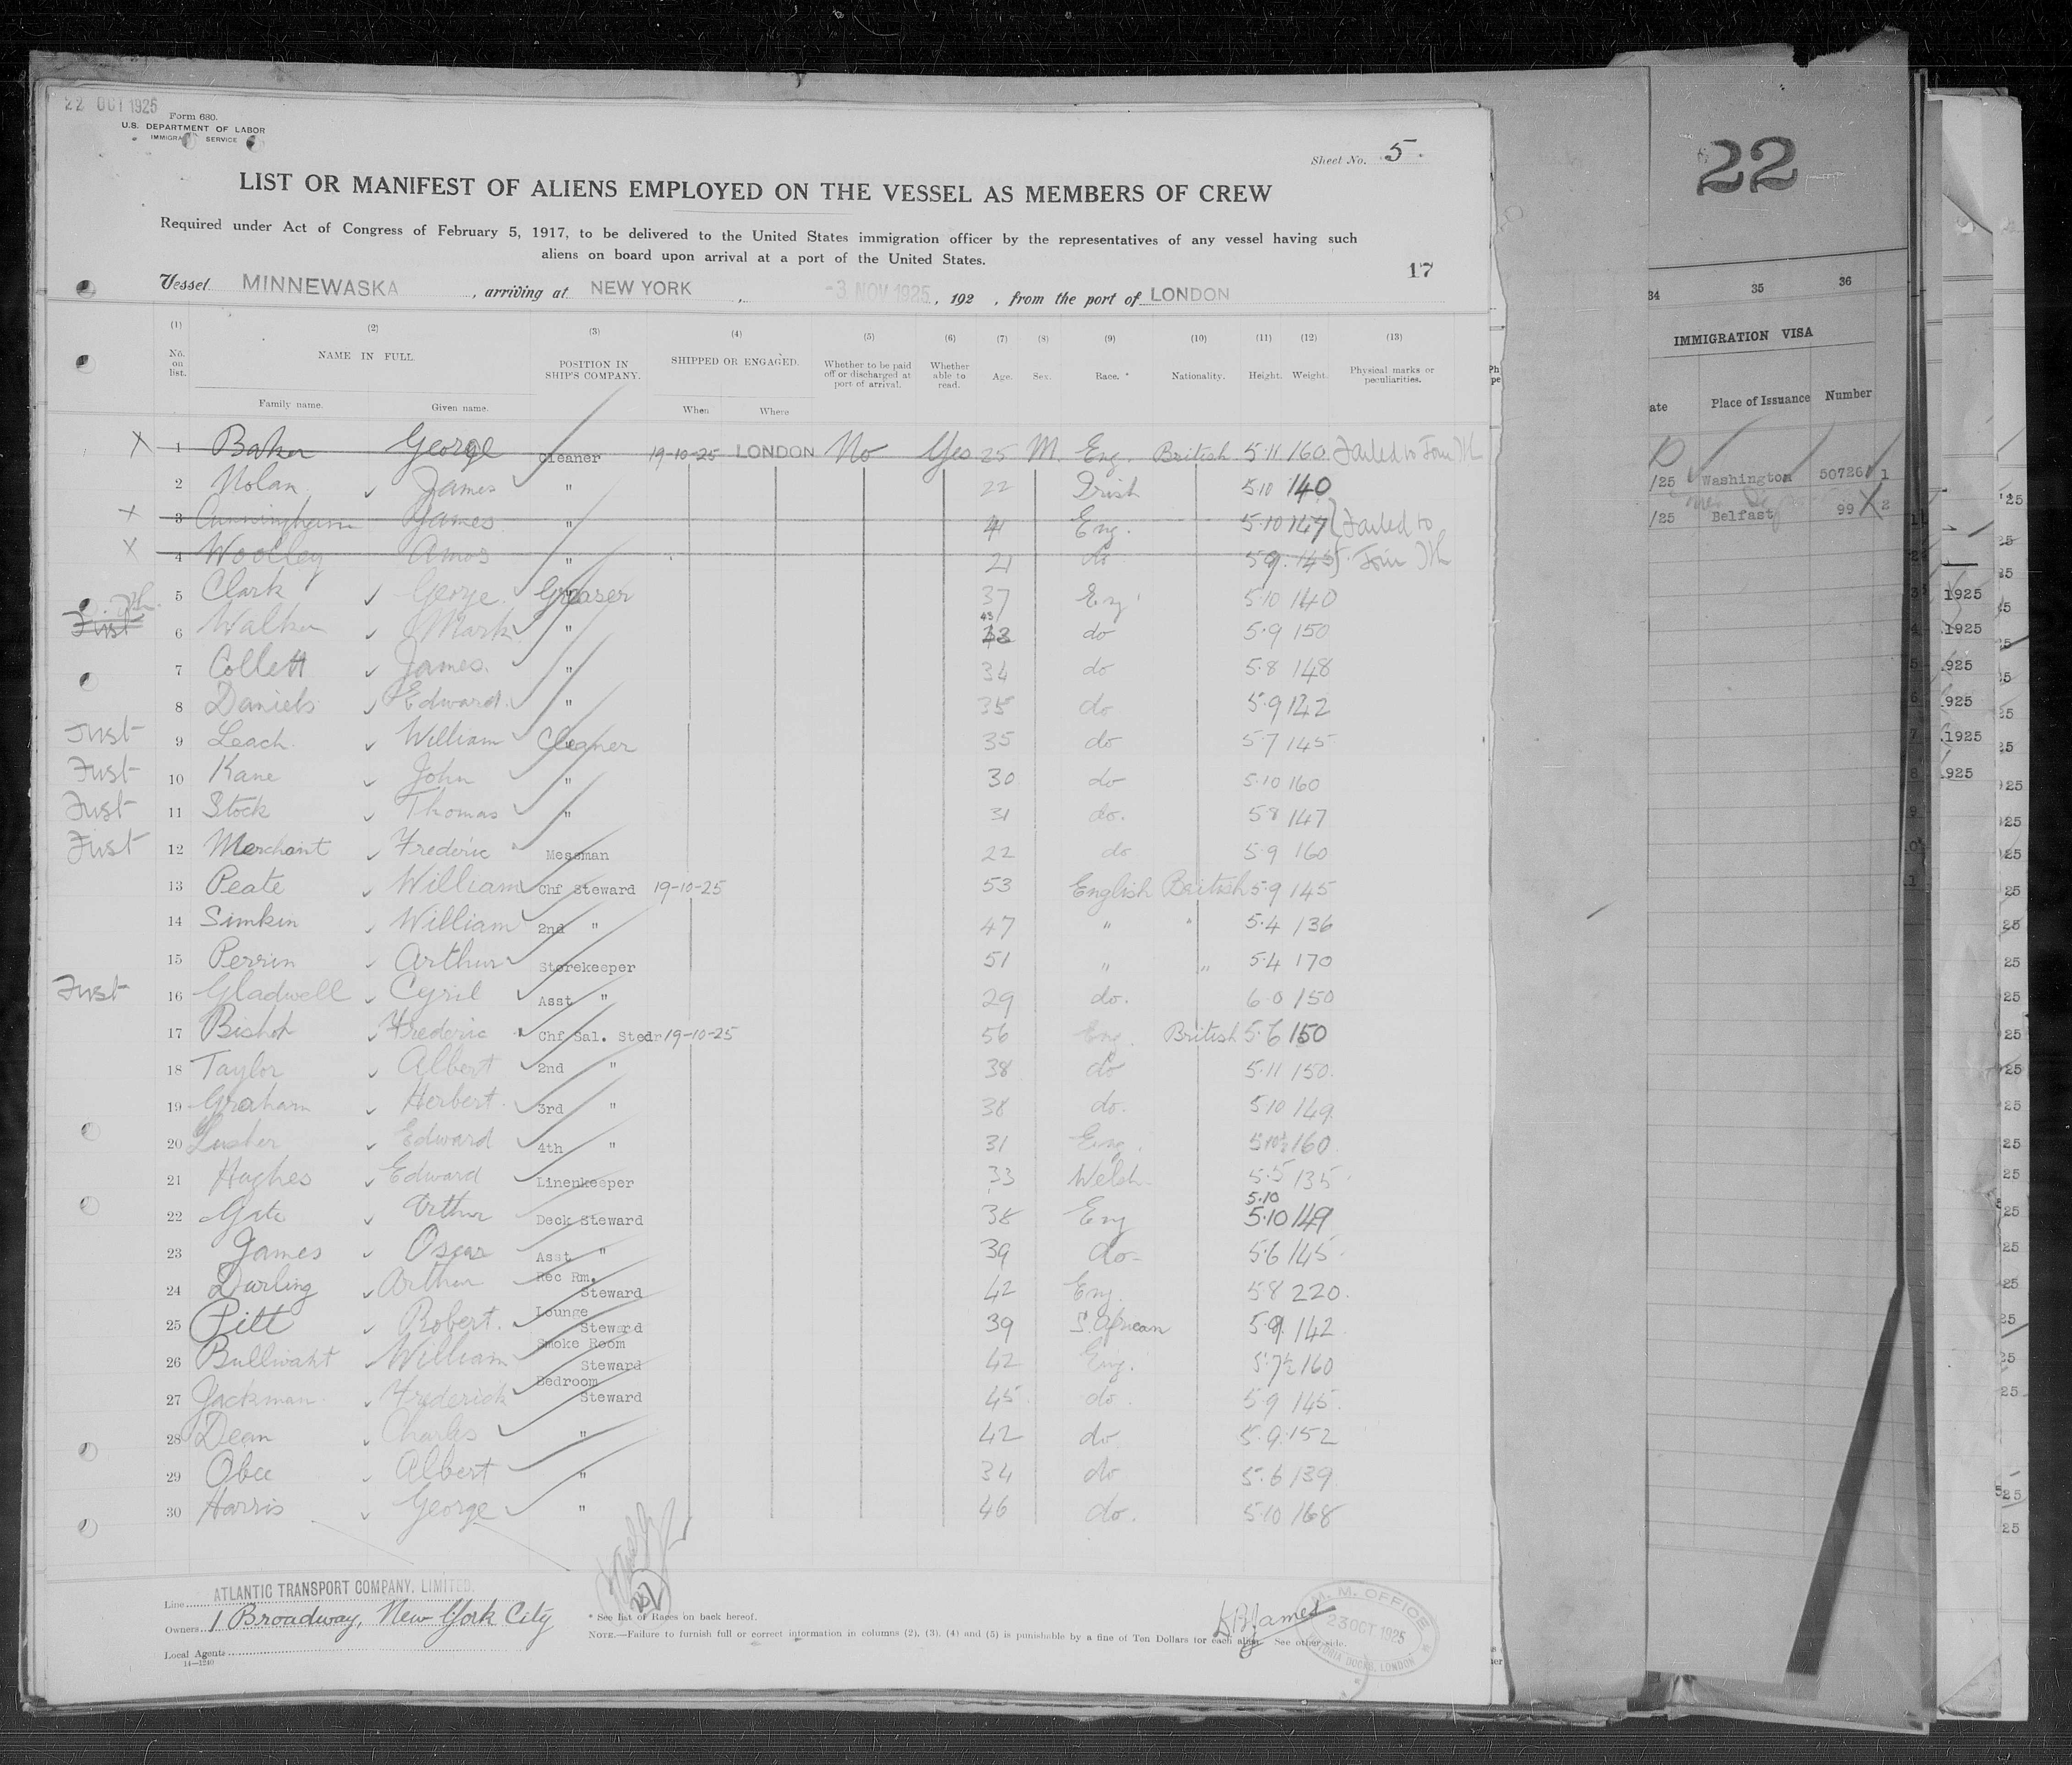 22 OCT 1925
Form 680.
U.S. DEPARTMENT OF LABOR
IMMIGRA SERVICE
Sheet No. 5.
LIST OR MANIFEST OF ALIENS EMPLOYED ON THE VESSEL AS MEMBERS OF CREW
Required under Act of Congress of February 5, 1917, to be delivered to the United States immigration officer by the representatives of any vessel having such
aliens on board upon arrival at a port of the United States.
17
Vessel MINNEWASKA, arriving at NEW YORK, -3 NOV 1925, 192 , from the port of LONDON
(1) (2) (3) (4) (5) (6) (7) (8) (9) (10) (11) (12) (13)
No. on list. NAME IN FULL. POSITION IN SHIP'S COMPANY. SHIPPED OR ENGAGED. Whether to be paid off or discharged at port of arrival. Whether able to read. Age. Sex. Race. * Nationality. Height. Weight. Physical marks or peculiarities.
Family name. Given name. When Where
X 1 Baker George Cleaner 19-10-25 LONDON No Yes 25 M. Eng. British 5.11 160 Failed to Join
2 Nolan James " 22 Irish 5.10 140
X 3 Cunningham James " 41 Eng. 5.10 147 } Failed to
X 4 Woolley Amos " 21 do 5.9. 145 } Join
5 Clark George Greaser 37 Eng 5.10 140
First 6 Walker Mark " 43 do 5.9 150
7 Collett James. " 34 do 5.8 148
8 Daniels Edward. " 35 do 5.9 142
First 9 Leach William Cleaner 35 do 5.7 145
First 10 Kane John " 30 do 5.10 160
First 11 Stock Thomas " 31 do. 5.8 147
First 12 Merchant Frederic Messman 22 do 5.9 160
13 Peate William Chf Steward 19-10-25 53 English British 5.9 145
14 Simkin William 2nd " 47 " " 5.4 136
15 Perrin Arthur Storekeeper 51 " " 5.4 170
First 16 Gladwell Cyril Asst " 29 do. 6.0 150
17 Bishop Frederic Chf Sal. Stedr 19-10-25 56 Eng. British 5.6 150
18 Taylor Albert 2nd " 38 do 5.11 150.
19 Graham Herbert 3rd " 38 do. 5.10 149.
20 Lusher Edward 4th " 31 Eng. 5.10½ 160
21 Hughes Edward Linenkeeper 33 Welsh 5.5 135
5.10
22 Gate Arthur Deck Steward 38 Eng 5.10 149
23 James Oscar Asst " 39 do- 5.6 145
24 Darling Arthur Rec Rm. Steward 42 Eng. 5.8 220.
25 Pitt Robert. Lounge Steward 39 S. African 5.9. 142
26 Bullivant William Smoke Room Steward 42 Eng. 5.7½ 160
27 Jackman Frederick Bedroom Steward 45 do 5.9 145
28 Dean Charles " 42 do 5.9. 152
29 Obee Albert " 34 do 5.6 139
30 Harris George " 46 do. 5.10 168
Line ATLANTIC TRANSPORT COMPANY, LIMITED.
Owners 1 Broadway, New York City
Local Agents
14—1240
* See list of Races on back hereof.
NOTE.—Failure to furnish full or correct information in columns (2), (3), (4) and (5) is punishable by a fine of Ten Dollars for each alien. See other side.
James
M. M. OFFICE
23 OCT 1925
VICTORIA DOCKS, LONDON
22
34 35 36
IMMIGRATION VISA
ate Place of Issuance Number
/25 Washington 50726 1
/25 Belfast 99 X 2
1925
1925
925
925
1925
925